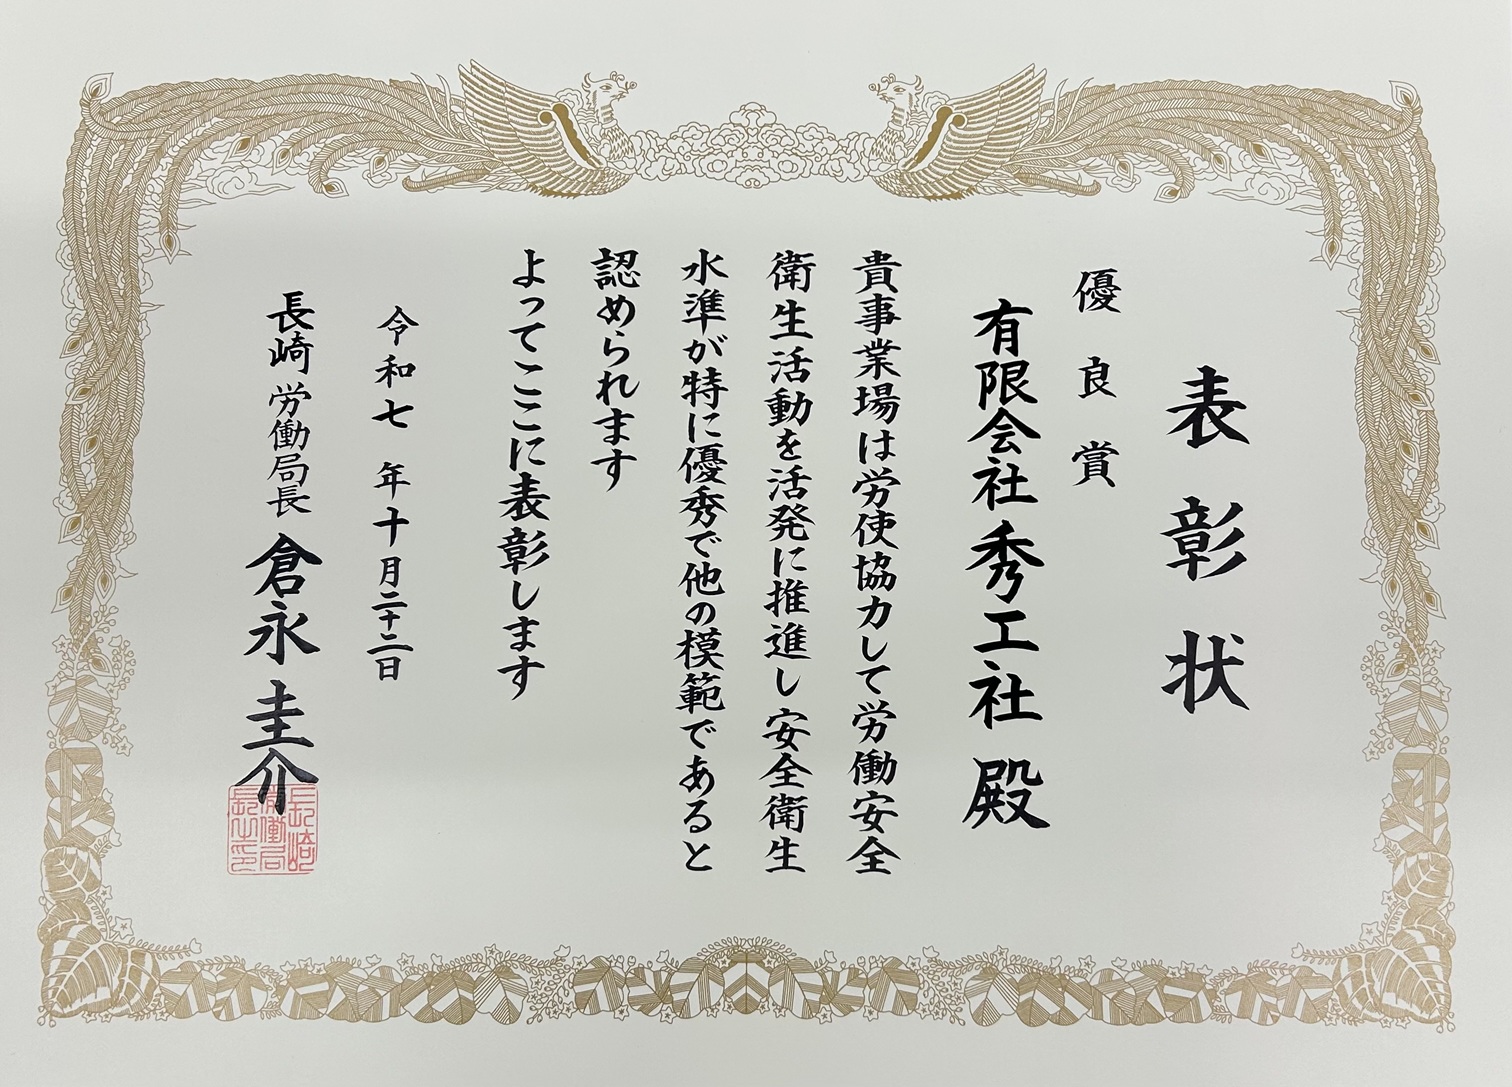 表彰状
優良賞
有限会社秀工社 殿
貴事業場は労使協力して労働安全
衛生活動を活発に推進し安全衛生
水準が特に優秀で他の模範であると
認められます
よってここに表彰します
令和七年十月二十二日
長崎労働局長 倉永圭介
長崎
労働局
長之印